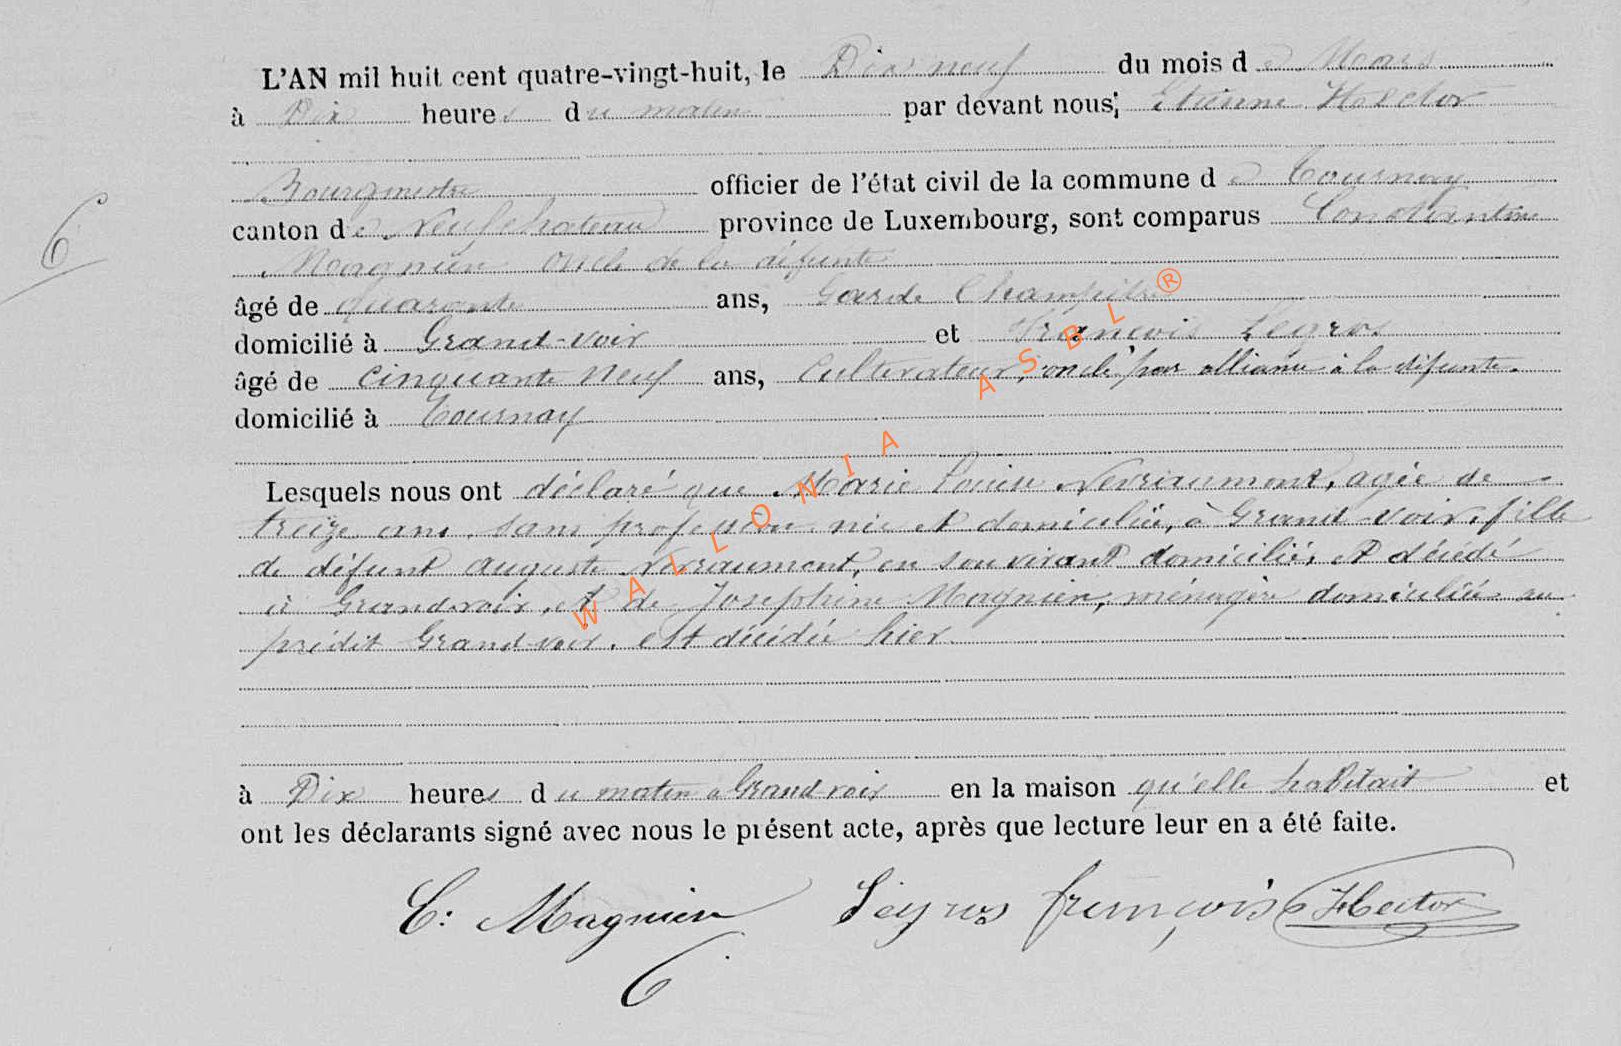 L'AN mil huit cent quatre-vingt-huit, le Dix neuf du mois de Mars
à Dix heures du matin par devant nous; Etienne Hector
Bourgmestre officier de l'état civil de la commune de Tournay
canton de Neufchateau province de Luxembourg, sont comparus Constantin
Magnien oncle de la défunte
âgé de quarante ans, Garde Champêtre
domicilié à Grand-voir et François Legros
âgé de cinquante neuf ans, Cultivateur, oncle par alliance à la défunte.
domicilié à Tournay
6
Lesquels nous ont déclaré que Marie Louise Nevraumont, agée de
treize ans, sans profession née et domiciliée, à Grand-voir, fille
de défunt Auguste Nevraumont, en son vivant domicilié, et décédé
à Grandvoir, et de Joséphine Magnien, ménagère domiciliée au
prédit Grand-voir, est décédée hier
à Dix heures du matin à Grandvoir en la maison qu'elle habitait et
ont les déclarants signé avec nous le présent acte, après que lecture leur en a été faite.
C: Magnien Legros françois E Hector
6
WALLONIA ASBL ®